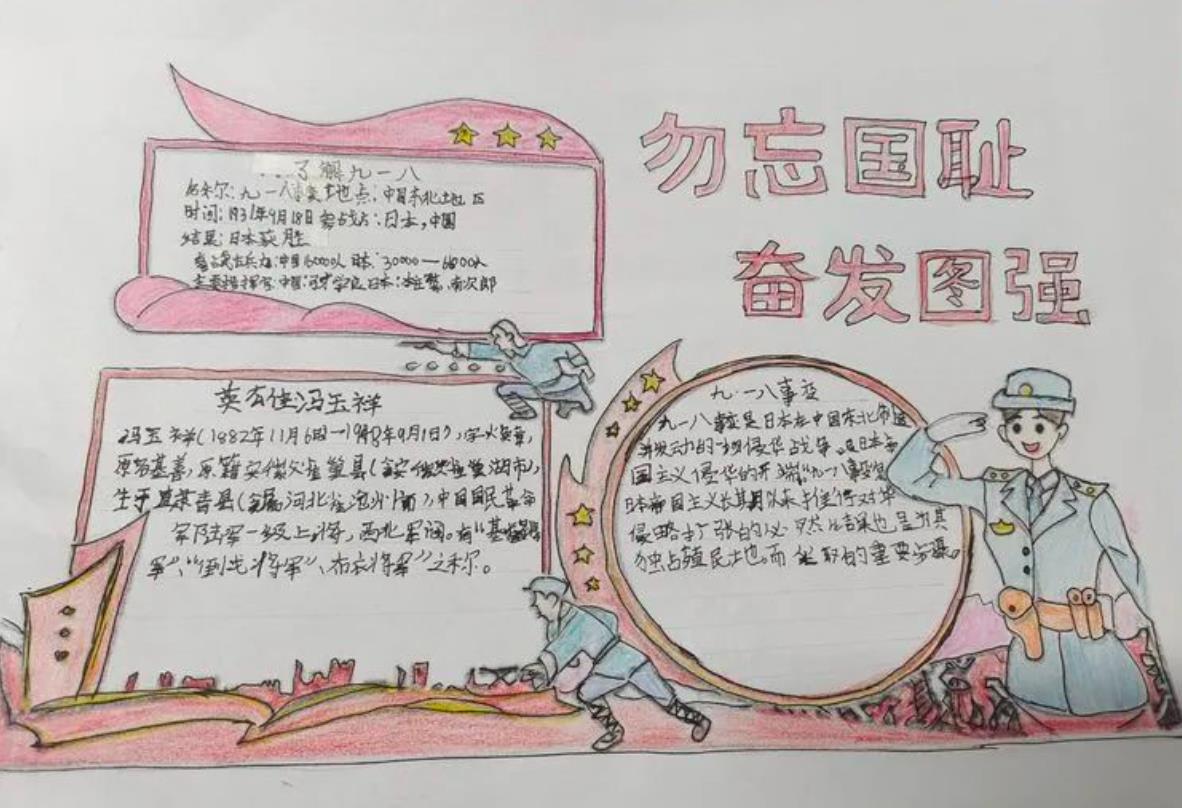 勿忘国耻
奋发图强
了解九一八
九一八事变地点:中国东北地区
时间:1931年9月18日参战方:日本,中国
结果:日本获胜
参战兵力:中国160000人日本:30000—66000人
主要指挥官:中国:张学良日本:次郎
冯玉祥
冯玉祥(1882年11月6日—1948年9月1日),字焕章,
原名基善,原籍安徽省巢县(今安徽巢湖市),
生于直隶青县(今属河北省沧州市),中国国民革命
军陆军一级上将,西北军阀。有“基督
军”、“倒戈将军”、布衣将军”之称。
九·一八事变
九一八事变是日本在中国东北
并发动的一场侵华战争。是日本帝
国主义侵华的开端“九一八事变是
日本帝国主义长期以来推行对华
侵略扩张的必然结果也是为其
独占殖民地。而采取的重要步骤。